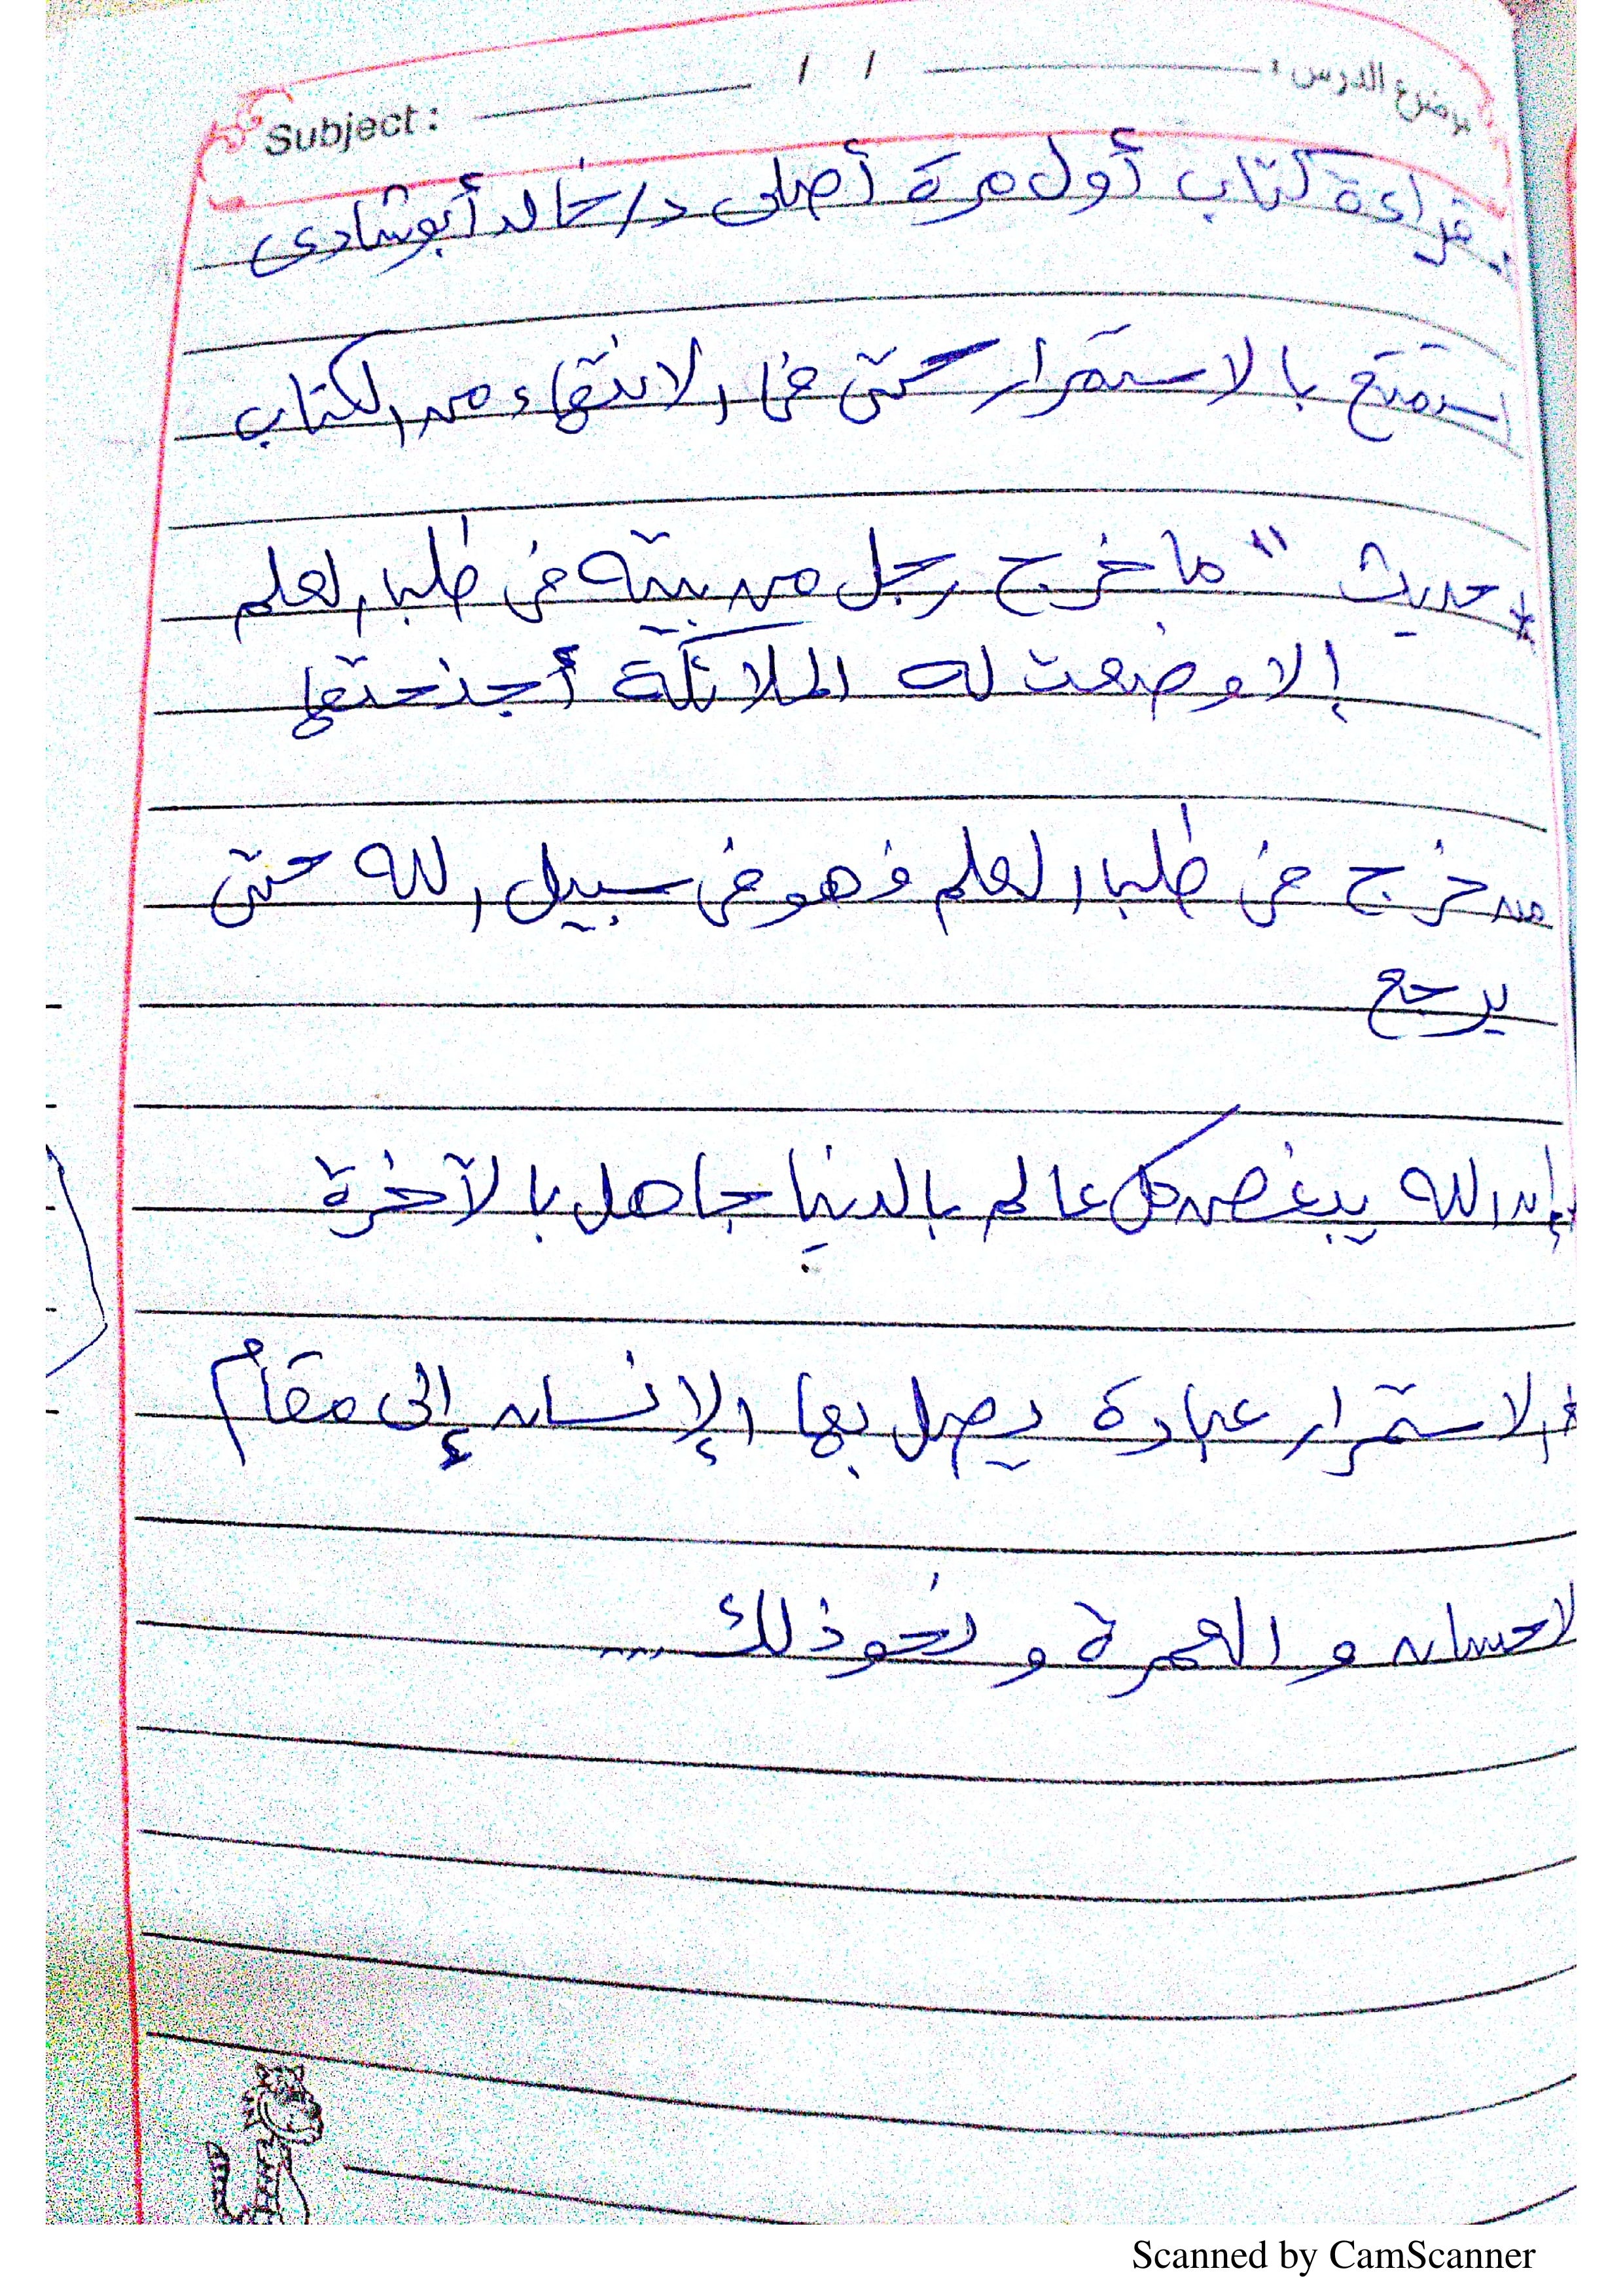 موضوع الدرس : / / Subject :
. قراءة كتاب أول مرة أصلى د/ خالد أبو شادى
استمتع بالاستمرار حتى فى الانتهاء من الكتاب
* حديث " ما خرج رجل من بيته فى طلب العلم
إلا وضعت له الملائكة أجنحتها
من خرج فى طلب العلم فهو فى سبيل الله حتى
يرجع
إن الله يبغض كل عالم بالدنيا جاهل بالآخرة
* الاستمرار عبادة يصل بها الإنسان إلى مقام
لاحسان و العمرة و نحو ذلك ...
Scanned by CamScanner